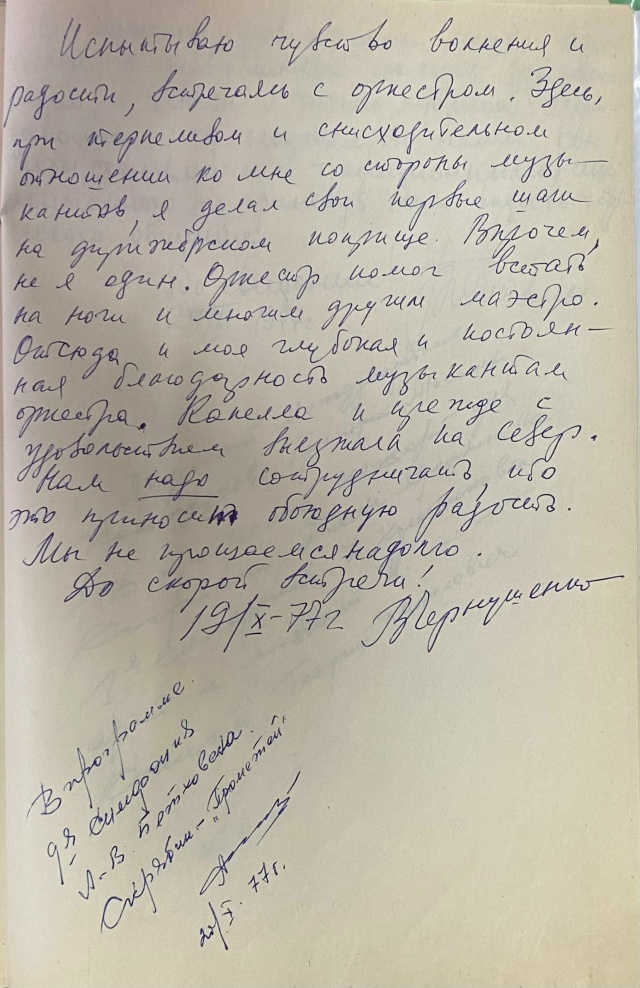 Испытываю чувство волнения и
радости, встречаясь с оркестром. Здесь,
при терпеливом и снисходительном
отношении ко мне со стороны музы-
кантов, я делал свои первые шаги
на дирижёрском поприще. Впрочем,
не я один. Оркестр помог встать
на ноги и многим другим маэстро.
Отсюда и моя глубокая и постоян-
ная благодарность музыкантам
оркестра. Капелла и прежде с
удовольствием выезжала на север.
Нам надо сотрудничать, ибо
это приносит обоюдную радость.
Мы не прощаемся надолго.
До скорой встречи!
19/X-77г ВЧернушенко
В программе.
9-я симфония
Л-В. Бетховена.
Скрябин - "Прометей"
20/X. 77г.